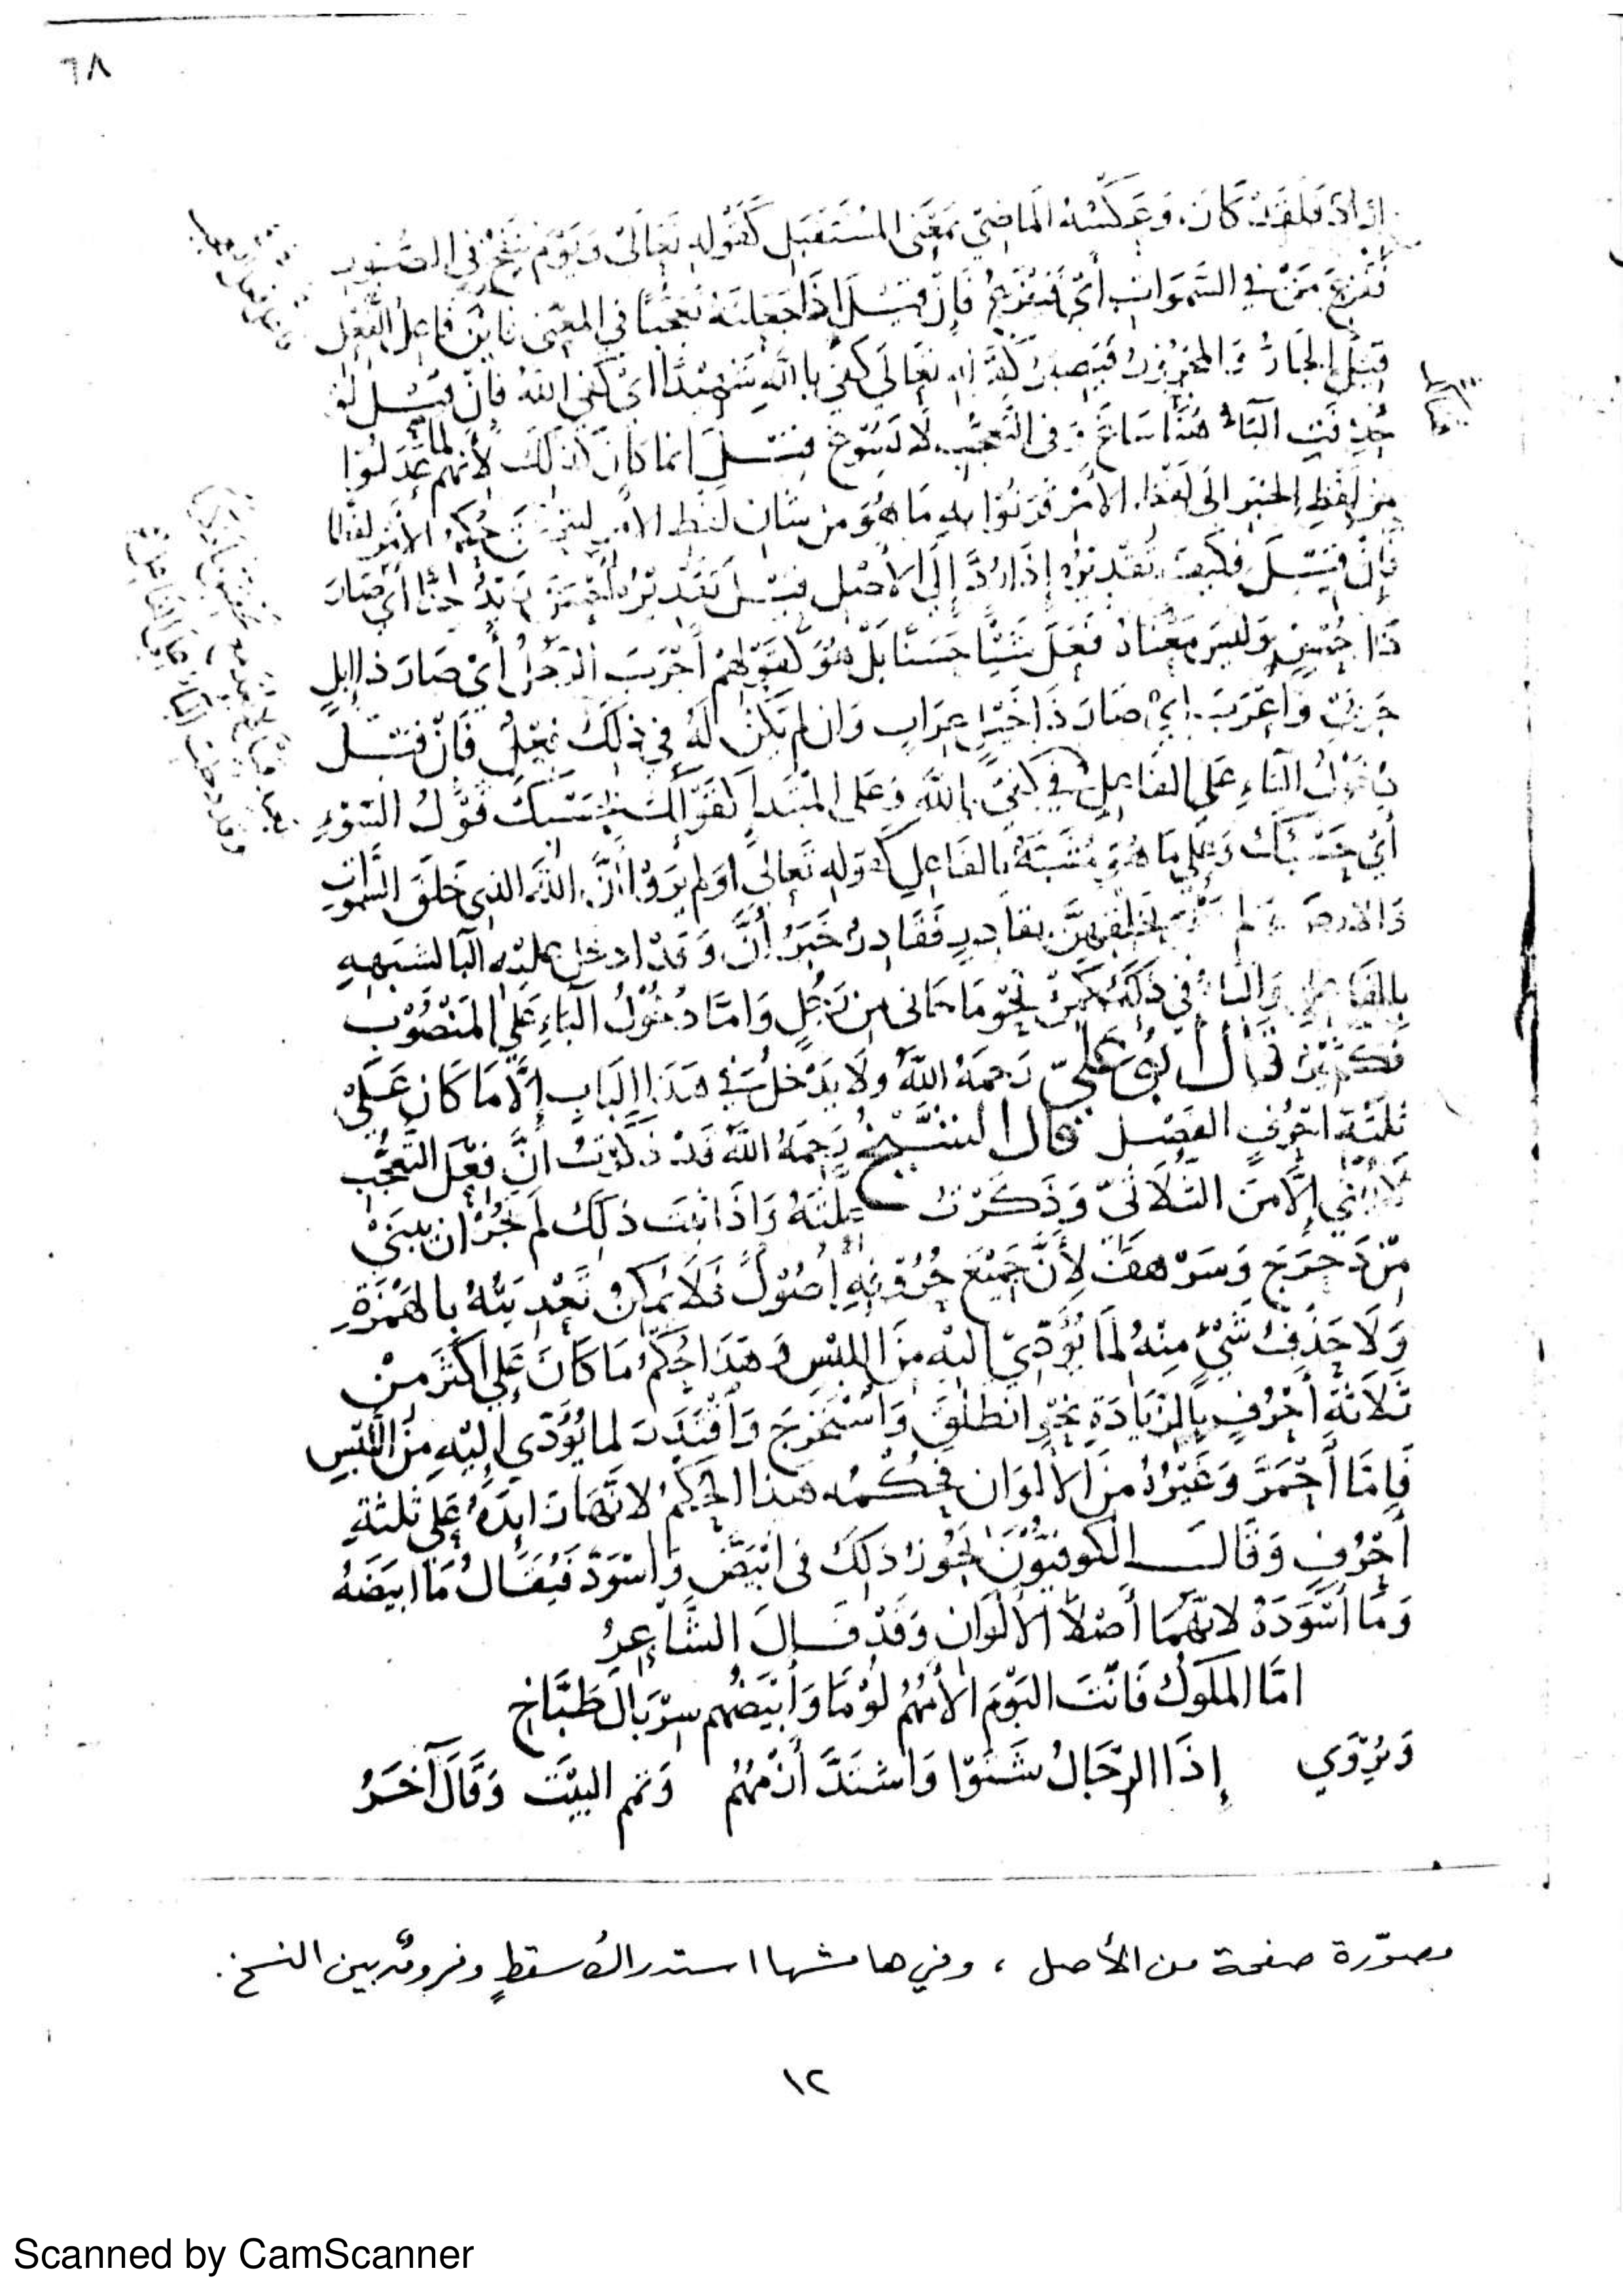 ٦٨
اراد فلقد كان. وعكسه الماضي بمعنى المستقبل كقوله تعالى ويوم ينفخ في الصور
ففزع من في السموات أي فيفزع فإن قيل إذا جعلته تعجبًا في المعنى فاين فاعل الفعل
قيل الجار والمجرور كقوله تعالى كفى بالله شهيدًا اي كفى الله فإن قيل لو
حذفت الباء هنا ساغ وفي التعجب لا يسوغ قيل انما كان كذلك لأنهم لما عدلوا
من لفظ الخبر الى لفظ الأمر قرنوا به ما هو من شأن لفظ الأمر حكم الأمر لفظا
فإن قيل فكيف تقديره إذا رد إلى الأصل قيل تقديره أي صار
ذا حسن وليس معناه فعل شيئا حسنا بل هو كقولهم أجرب الرجل أي صار ذا إبل
جربت وأعرب اي صار ذا خيل عراب وان لم يكن له في ذلك فعل فإن قيل
دخول الباء على الفاعل في كفى بالله وعلى المبتدا كقولك بحسبك قول السوء
أي حسبك وعلى ما هو مشبه بالفاعل كقوله تعالى اولم يروا أن الله الذي خلق السموات
والارض ولم يعي بخلقهن بقادر فقادر خبر أن وقد ادخل عليه البا لشبهه
بالفاعل والباء في ذلك نحو ما جاءني من رجل وامّا دخول الباء على المنصوب
فكثير قال أبو علي رحمه الله ولا يدخل في هذا الباب إلّا ما كان على
ثلثة احرف الفصل قال الشيخ رحمه الله قد ذكرت أن فعل التعجب
لا يبنى إلّا من الثلاثي وذكرت علته واذا ثبت ذلك لم يجز ان يبنى
من دحرج وسرهف لأن جميع حروفه أصول فلا يمكن تعديته بالهمزة
ولا حذف شيء منه لما يؤدي اليه من اللبس وهذا حكم ما كان على اكثر من
ثلاثة أحرف بالزيادة نحو انطلق واستخرج واقتدر لما يؤدي إليه من اللبس
فإما أحمر وغيره من الألوان فحكمه هذا الحكم لانها زايدة على ثلثة
أحرف وقال الكوفيون يجوز ذلك في ابيض واسود فيقال ما ابيضه
وما أسوده لانهما أصلا الألوان وقد قال الشاعر
امّا الملوك فانت اليوم الأمهم لؤمًا وأبيضهم سربال طباخ
ويروي إذا الرجال شتوا واشتد أزمهم وتم البيت وقال آخر
مصوّرة صفحة من الأصل ، وفي هامشها استدراك سقطٍ وفروق بين النسخ .
١٢
Scanned by CamScanner